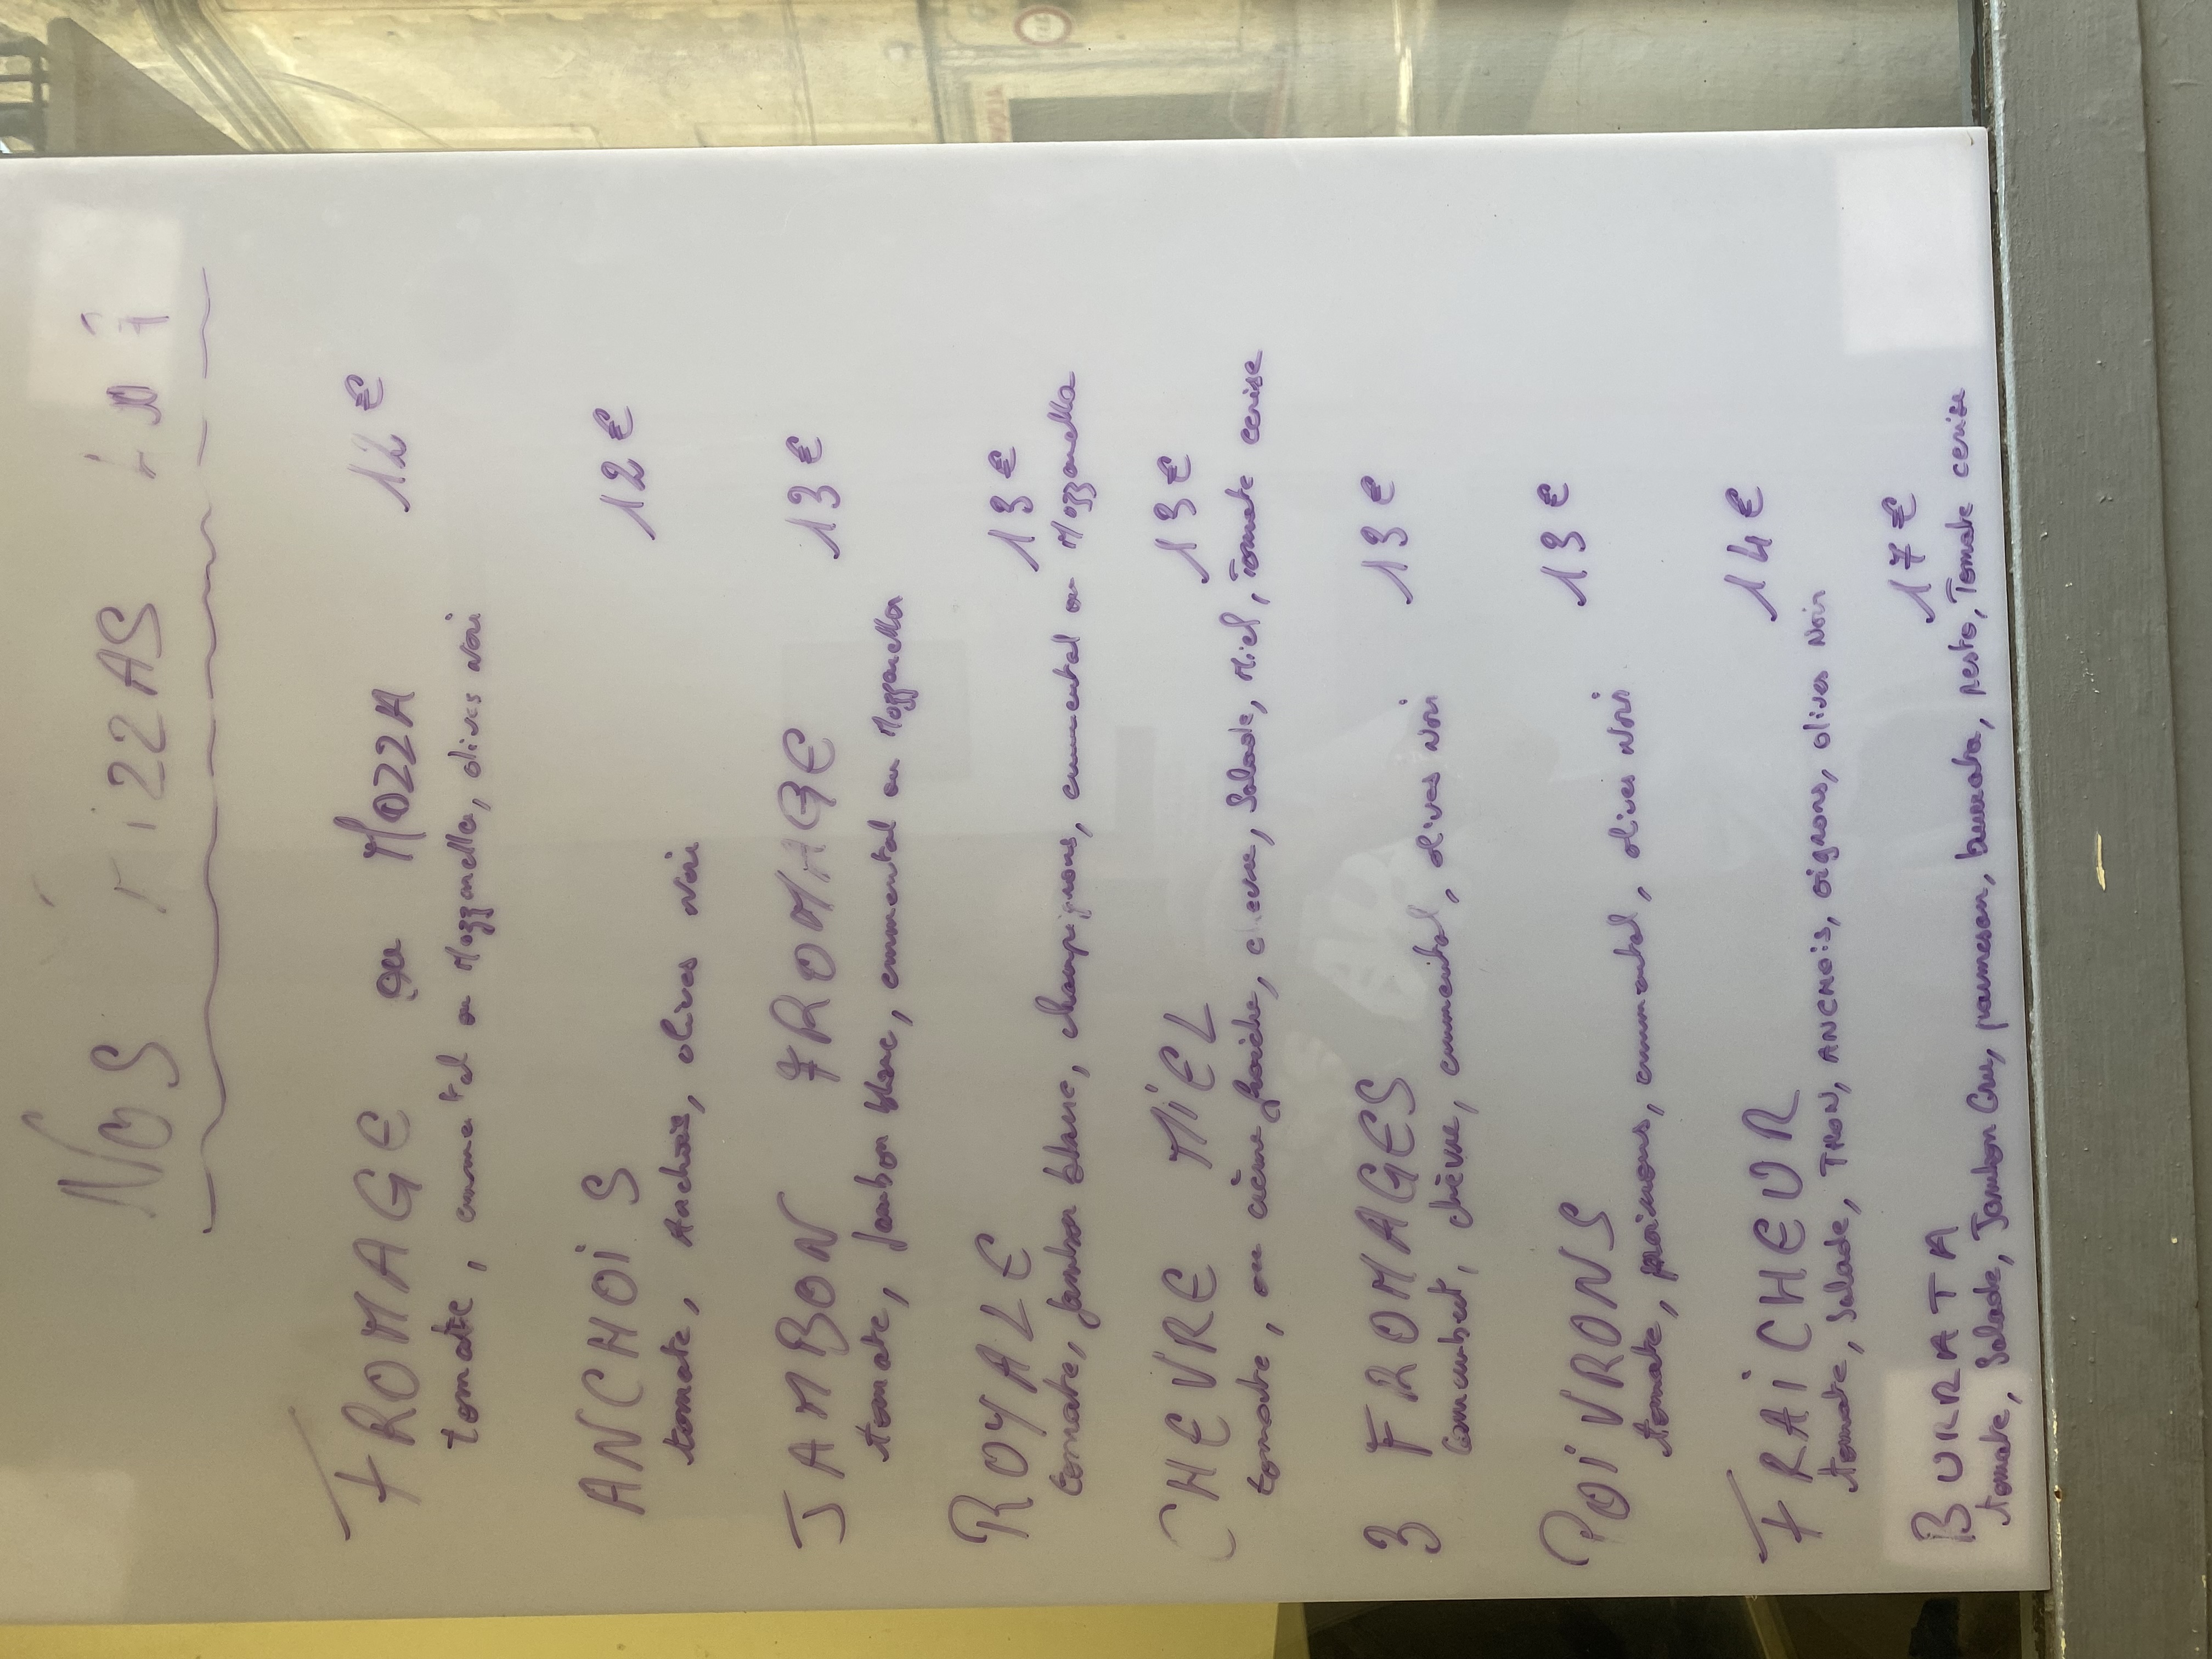 NOS PiZZAS
FROMAGE ou MOZZA 12 €
tomate, emmental ou Mozzarella, olives Noir
ANCHOiS 12 €
tomate, Anchois, olives Noir
JAMBON FROMAGE 13 €
tomate, Jambon blanc, emmental ou Mozzarella
ROYALE 13 €
tomate, Jambon blanc, champignons, emmental ou Mozzarella
CHEVRE MiEL 13 €
tomate, ou crème fraiche, chevre, Salade, Miel, Tomate cerise
3 FROMAGES 13 €
Camembert, chèvre, emmental, olives Noir
POiVRONS 13 €
tomate, poivrons, emmental, olives Noir
FRAiCHEUR 14 €
tomate, Salade, THON, ANCHOiS, oignons, olives Noir
BURRATA 17 €
tomate, Salade, Jambon Cru, parmesan, burrata, pesto, Tomate cerise